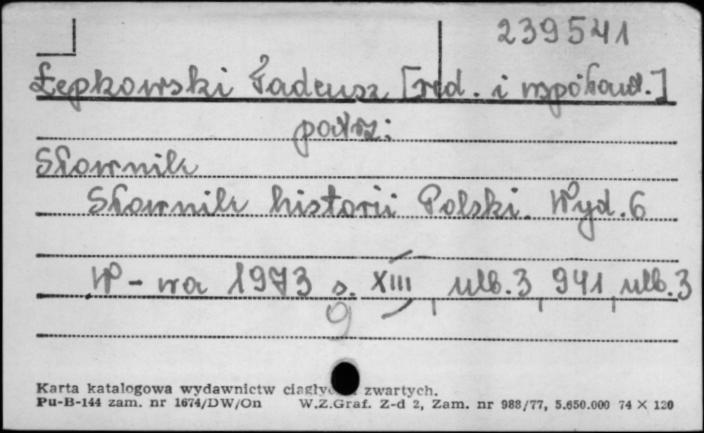 239541
Łepkowski Tadeusz [red. i współaut.]
patrz:
Słownik
Słownik historii Polski. Wyd. 6
W-wa 1973 s. XIII, nlb. 3, 941, nlb. 3
9
Karta katalogowa wydawnictw ciągłyc zwartych.
Pu-B-144 zam. nr 1674/DW/On W.Z.Graf. Z-d 2, Zam. nr 988/77, 5.650.000 74 × 120